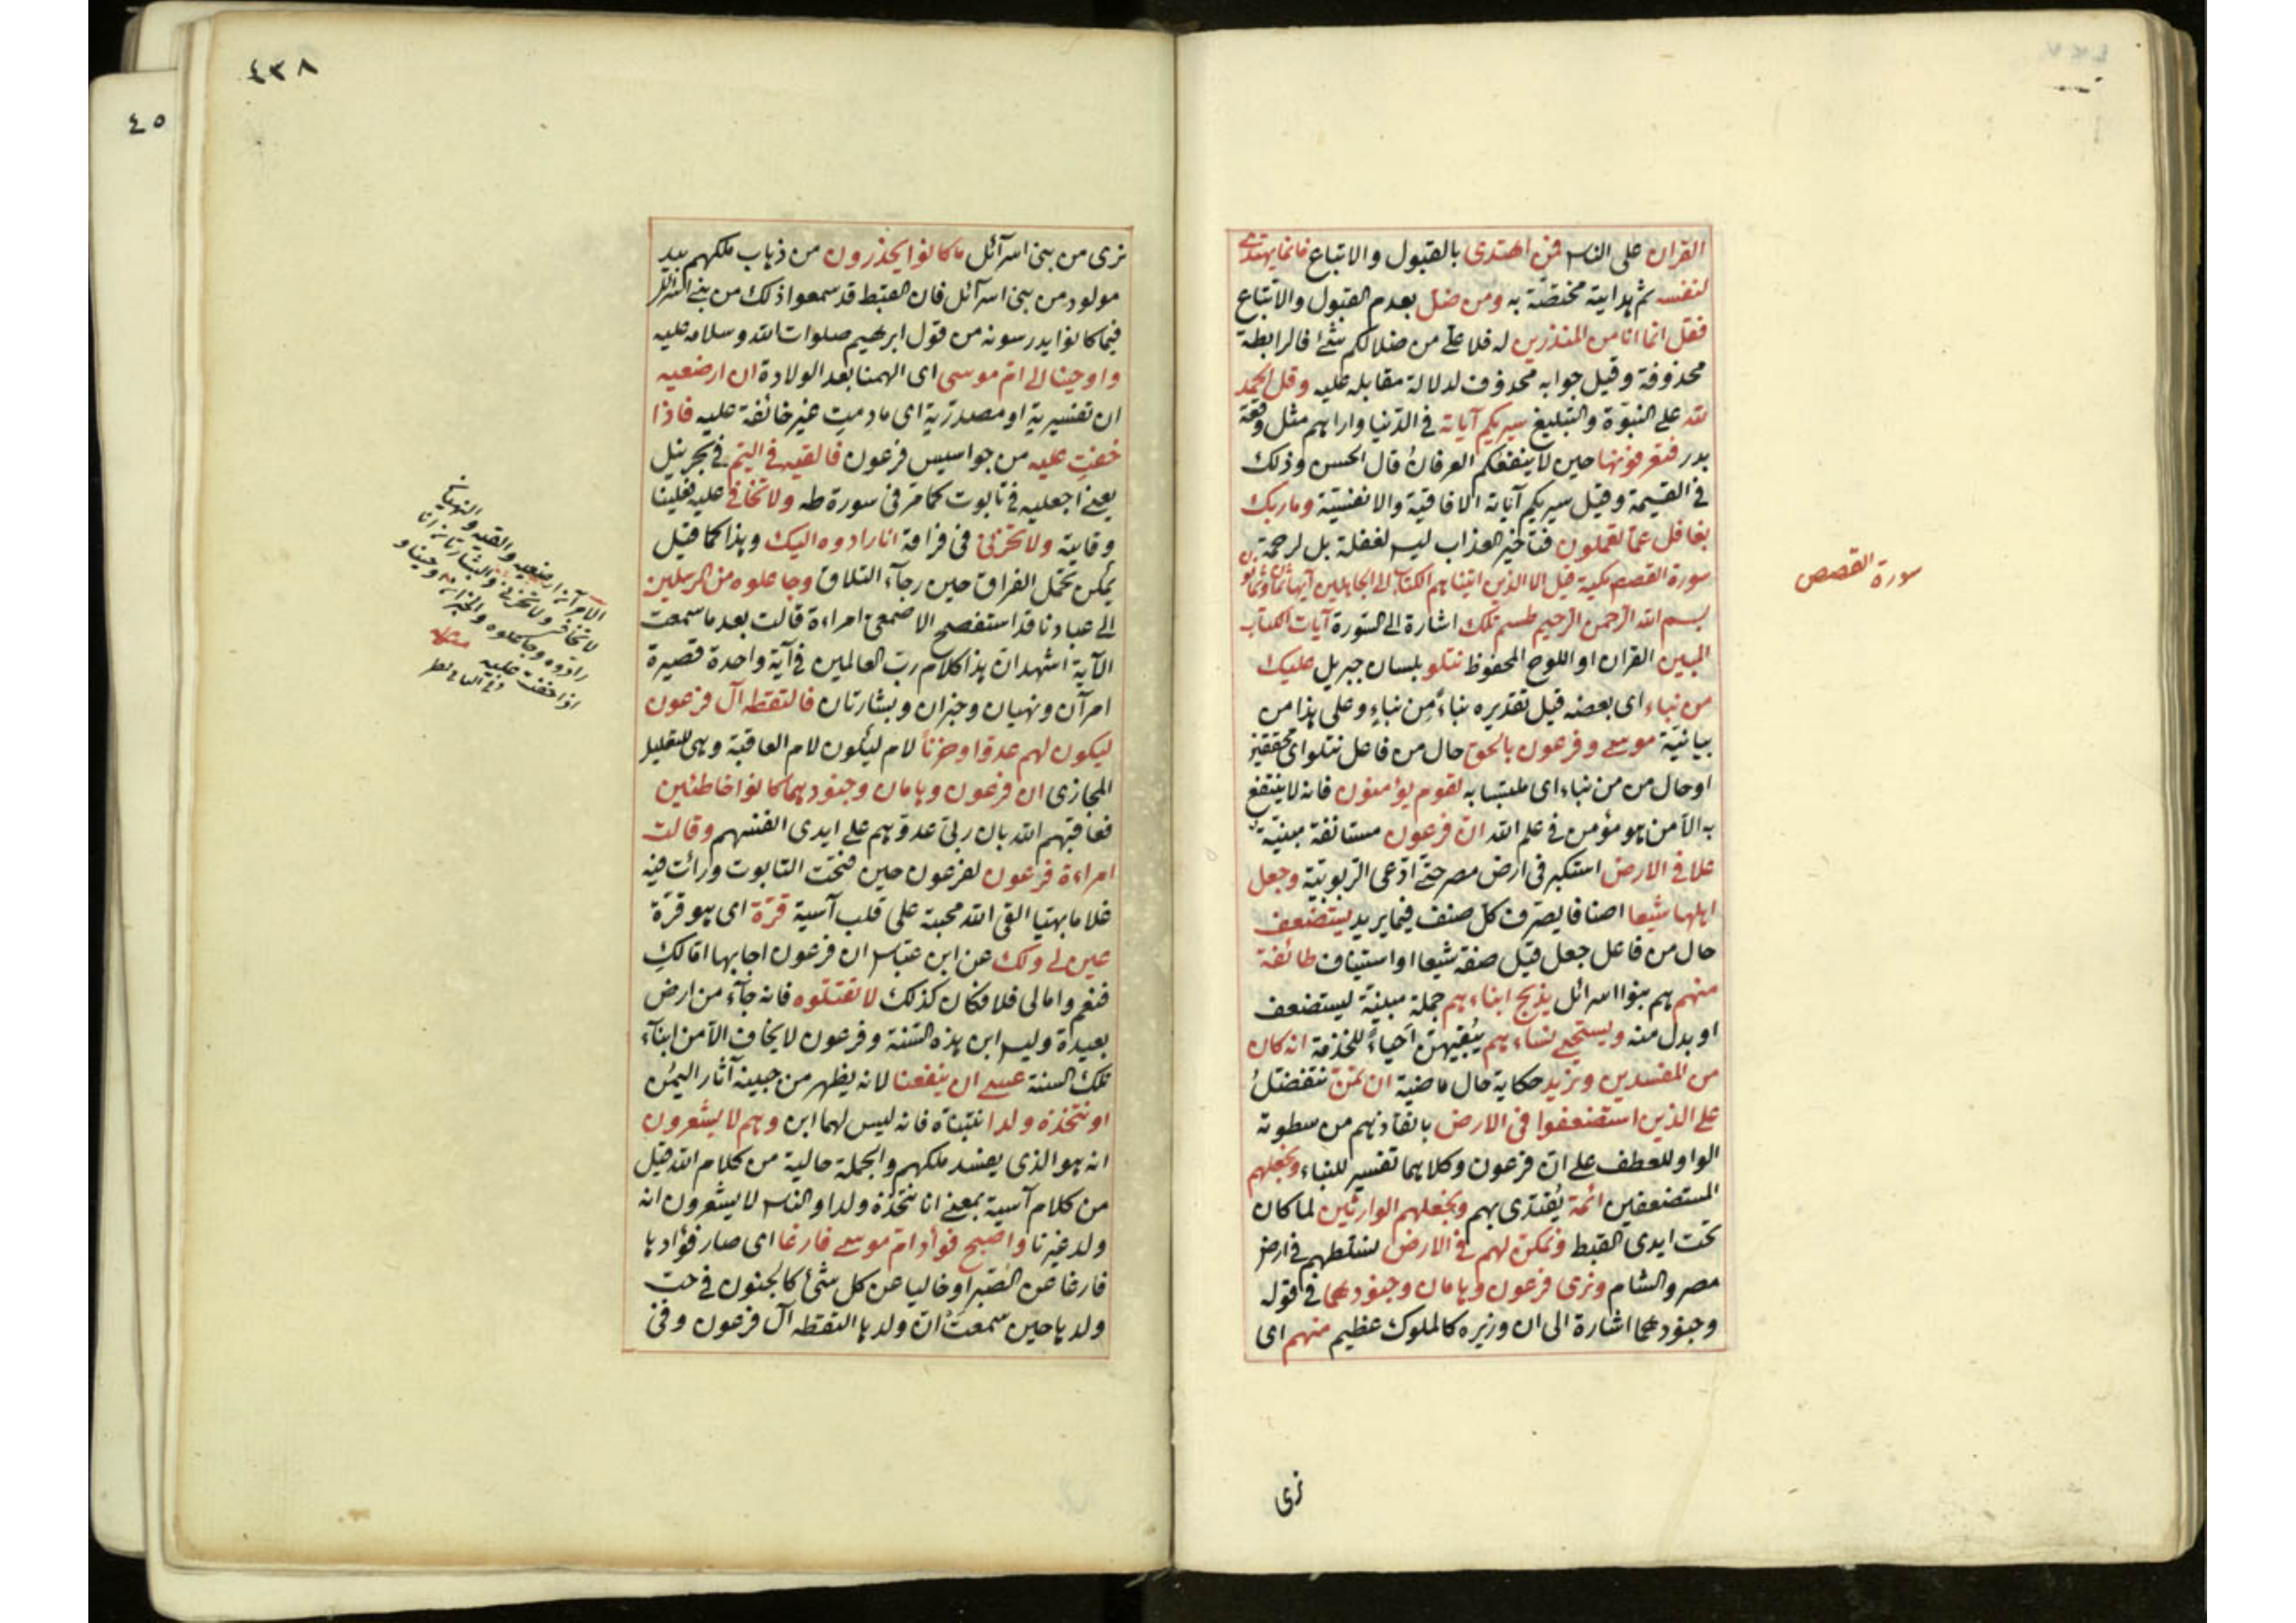 القران على الناس فمن اهتدى بالقبول والاتباع فانما يهتدى
لنفسه ثم هدايته مختصّة به ومن ضل بعدم القبول والاتباع
فقل انما انا من المنذرين له فلا علىّ من ضلالكم شئ فالرابطة
محذوفة وقيل جوابه محذوف لدلالة مقابله عليه وقل الحمد
لله على النبوّة والتبليغ سيريكم آياته فى الدّنيا واراهم مثل وقعة
بدر فتعرفونها حين لا ينفعكم العرفان قال الحسن وذلك
فى القيمة وقيل سيريكم آياته الافاقية والانفسية وما ربك
بغافل عما تعملون فتأخير العذاب ليس لغفلة بل لرحمة
سورة القصص مكية قيل الا الذين اتيناهم الكتاب الى الجاهلين آيها
بسم الله الرحمن الرحيم طسم تلك اشارة الى السّورة آيات الكتاب
المبين القران او اللوح المحفوظ نتلو بلسان جبريل عليك
من نباء اى بعضه قيل تقديره نباءً من نباءٍ وعلى هذا من
بيانيّة موسى وفرعون بالحق حال من فاعل نتلو اى محققين
او حال من من نباء اى ملتبسا به لقوم يؤمنون فانه لا ينتفع
به الّا من هو مؤمن فى علم الله انّ فرعون مستانفة مبنيّة
علا فى الارض استكبر فى ارض مصر حتّى ادّعى الرّبوبيّة وجعل
اهلها شيعا اصنافا يصرف كلّ صنف فيما يريد يستضعف
حال من فاعل جعل قيل صفة شيعا او استيناف طائفة
منهم هم بنوا اسرائل يذبح ابناءهم جملة مبينّة ليستضعف
او بدل منه ويستحيى نساءهم يُبقيهنّ اَحياءً للخدمة انه كان
من المفسدين ونريد حكاية حال ماضية ان نمنّ نتفضّلُ
على الذين استضعفوا فى الارض بانقاذهم من سطوته
الواو للعطف على انّ فرعون وكلاهما تفسير للنباء ونجعلهم
المستضعفين ائمة يُقتدى بهم ونجعلهم الوارثين لما كان
تحت ايدى القبط ونمكن لهم فى الارض نسلّطهم فى ارض
مصر والشام ونرى فرعون وهامان وجنودهما فى قوله
وجنودهما اشارة الى ان وزيره كالملوك عظيم منهم اى
نرى
سورة القصص
٤٣٨
نرى من بنى اسرآئل ما كانوا يحذرون من ذهاب ملكهم بيد
مولود من بنى اسرآئل فان القبط قد سمعوا ذلك من بنى اسرائل
فيما كانوا يدرسونه من قول ابرهيم صلوات الله وسلامه عليه
واوحينا الى امّ موسى اى الهمنا بعد الولادة ان ارضعيه
ان تفسيرية او مصدرّية اى ما دمت غير خائفة عليه فاذا
خفتِ عليه من جواسيس فرعون فالقيه فى اليّم فى بحر نيل
يعنى اجعليه فى تابوت كما مر فى سورة طه ولا تخافى عليه فعلينا
وقايته ولا تحزنى فى فراقه انا رادوه اليك وهذا كما قيل
يمكن تحمّل الفراق حين رجآء التلاق وجاعلوه من المرسلين
الى عبادنا قد استفصح الاصمعى امراءة قالت بعد ما سمعت
الآية اشهد ان هذا كلام ربّ العالمين فى آية واحدة قصيرة
امرآن ونهيان وخبران وبشارتان فالتقطه آل فرعون
ليكون لهم عدوّا وحزناً لام ليكون لام العاقبة وهى للتعليل
المجازى ان فرعون وهامان وجنودهما كانوا خاطئين
فعاقبهم الله بان ربّى عدوّهم على ايدى انفسهم وقالت
امراءة فرعون لفرعون حين فتحت التابوت ورأت فيه
غلاما بهيّا القى الله محبته على قلب آسية قرّة اى هو قرّة
عين لى ولك عن ابن عبّاس ان فرعون اجابها امّا لكِ
فنعم واما لى فلا فكان كذلك لا تقتلوه فانه جآء من ارض
بعيدة وليس ابن هذه السّنة وفرعون لا يخاف الّا من ابنآء
تلك السنة عسى ان ينفعنا لانه يظهر من جبينه آثار اليُمن
او نتخذه ولدا نتبنّاه فانه ليس لهما ابن وهم لا يشعرون
انه هو الذى يفسد ملكهم والجملة حالية من كلام الله قيل
من كلام آسية بمعنى انا نتخذه ولدا والناس لا يشعرون انه
ولد غيرنا واصبح فؤاد امّ موسى فارغا اى صار فؤادها
فارغا عن الصّبر او خاليا عن كل شئ كالجنون فى حب
ولدها حين سمعت انّ ولدها التقطه آل فرعون وفى
الامر آن ارضعيه والقيه والنهيان
لا تخافى ولا تحزنى والبشارتان انا
رادوه وجاعلوه والخبران اوحينا و
اذا خفت عليه
٤٥